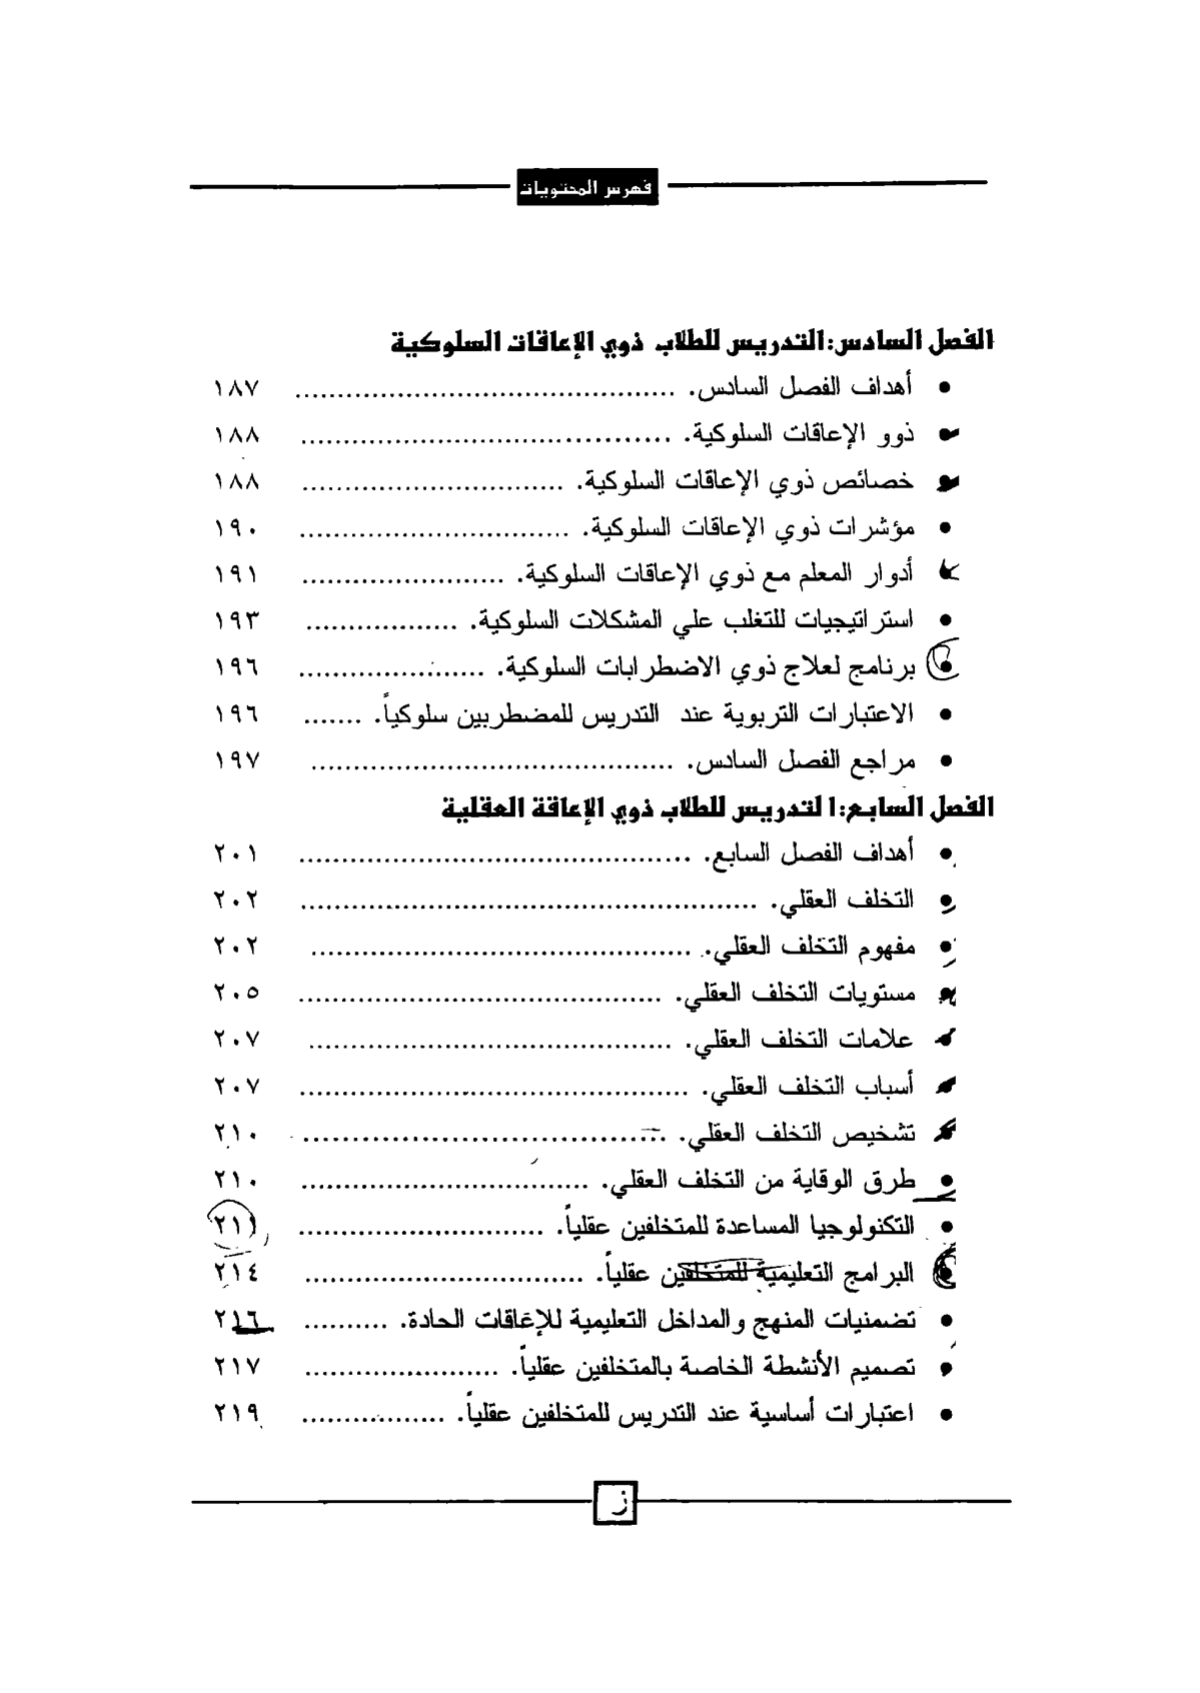 فهرس المحتويات
الفصل السادس: التدريس للطلاب ذوي الإعاقات السلوكية
• أهداف الفصل السادس. ............................................. ١٨٧
• ذوو الإعاقات السلوكية. ............................................ ١٨٨
• خصائص ذوي الإعاقات السلوكية. ............................... ١٨٨
• مؤشرات ذوي الإعاقات السلوكية. ................................ ١٩٠
• أدوار المعلم مع ذوي الإعاقات السلوكية. ........................ ١٩١
• استراتيجيات للتغلب علي المشكلات السلوكية. .................. ١٩٣
• برنامج لعلاج ذوي الاضطرابات السلوكية. ...................... ١٩٦
• الاعتبارات التربوية عند التدريس للمضطربين سلوكياً. ....... ١٩٦
• مراجع الفصل السادس. ........................................... ١٩٧
الفصل السابع: التدريس للطلاب ذوي الإعاقة العقلية
• أهداف الفصل السابع. .............................................. ٢٠١
• التخلف العقلي. ...................................................... ٢٠٢
• مفهوم التخلف العقلي. ............................................. ٢٠٢
• مستويات التخلف العقلي. ........................................... ٢٠٥
• علامات التخلف العقلي. ........................................... ٢٠٧
• أسباب التخلف العقلي. .............................................. ٢٠٧
• تشخيص التخلف العقلي. ........................................... ٢١٠
• طرق الوقاية من التخلف العقلي. .................................. ٢١٠
• التكنولوجيا المساعدة للمتخلفين عقلياً. ............................. ٢١١
• البرامج التعليمية للمتخلفين عقلياً. ................................. ٢١٤
• تضمنيات المنهج والمداخل التعليمية للإعاقات الحادة. .......... ٢١٦
• تصميم الأنشطة الخاصة بالمتخلفين عقلياً. ....................... ٢١٧
• اعتبارات أساسية عند التدريس للمتخلفين عقلياً. ................. ٢١٩
ز